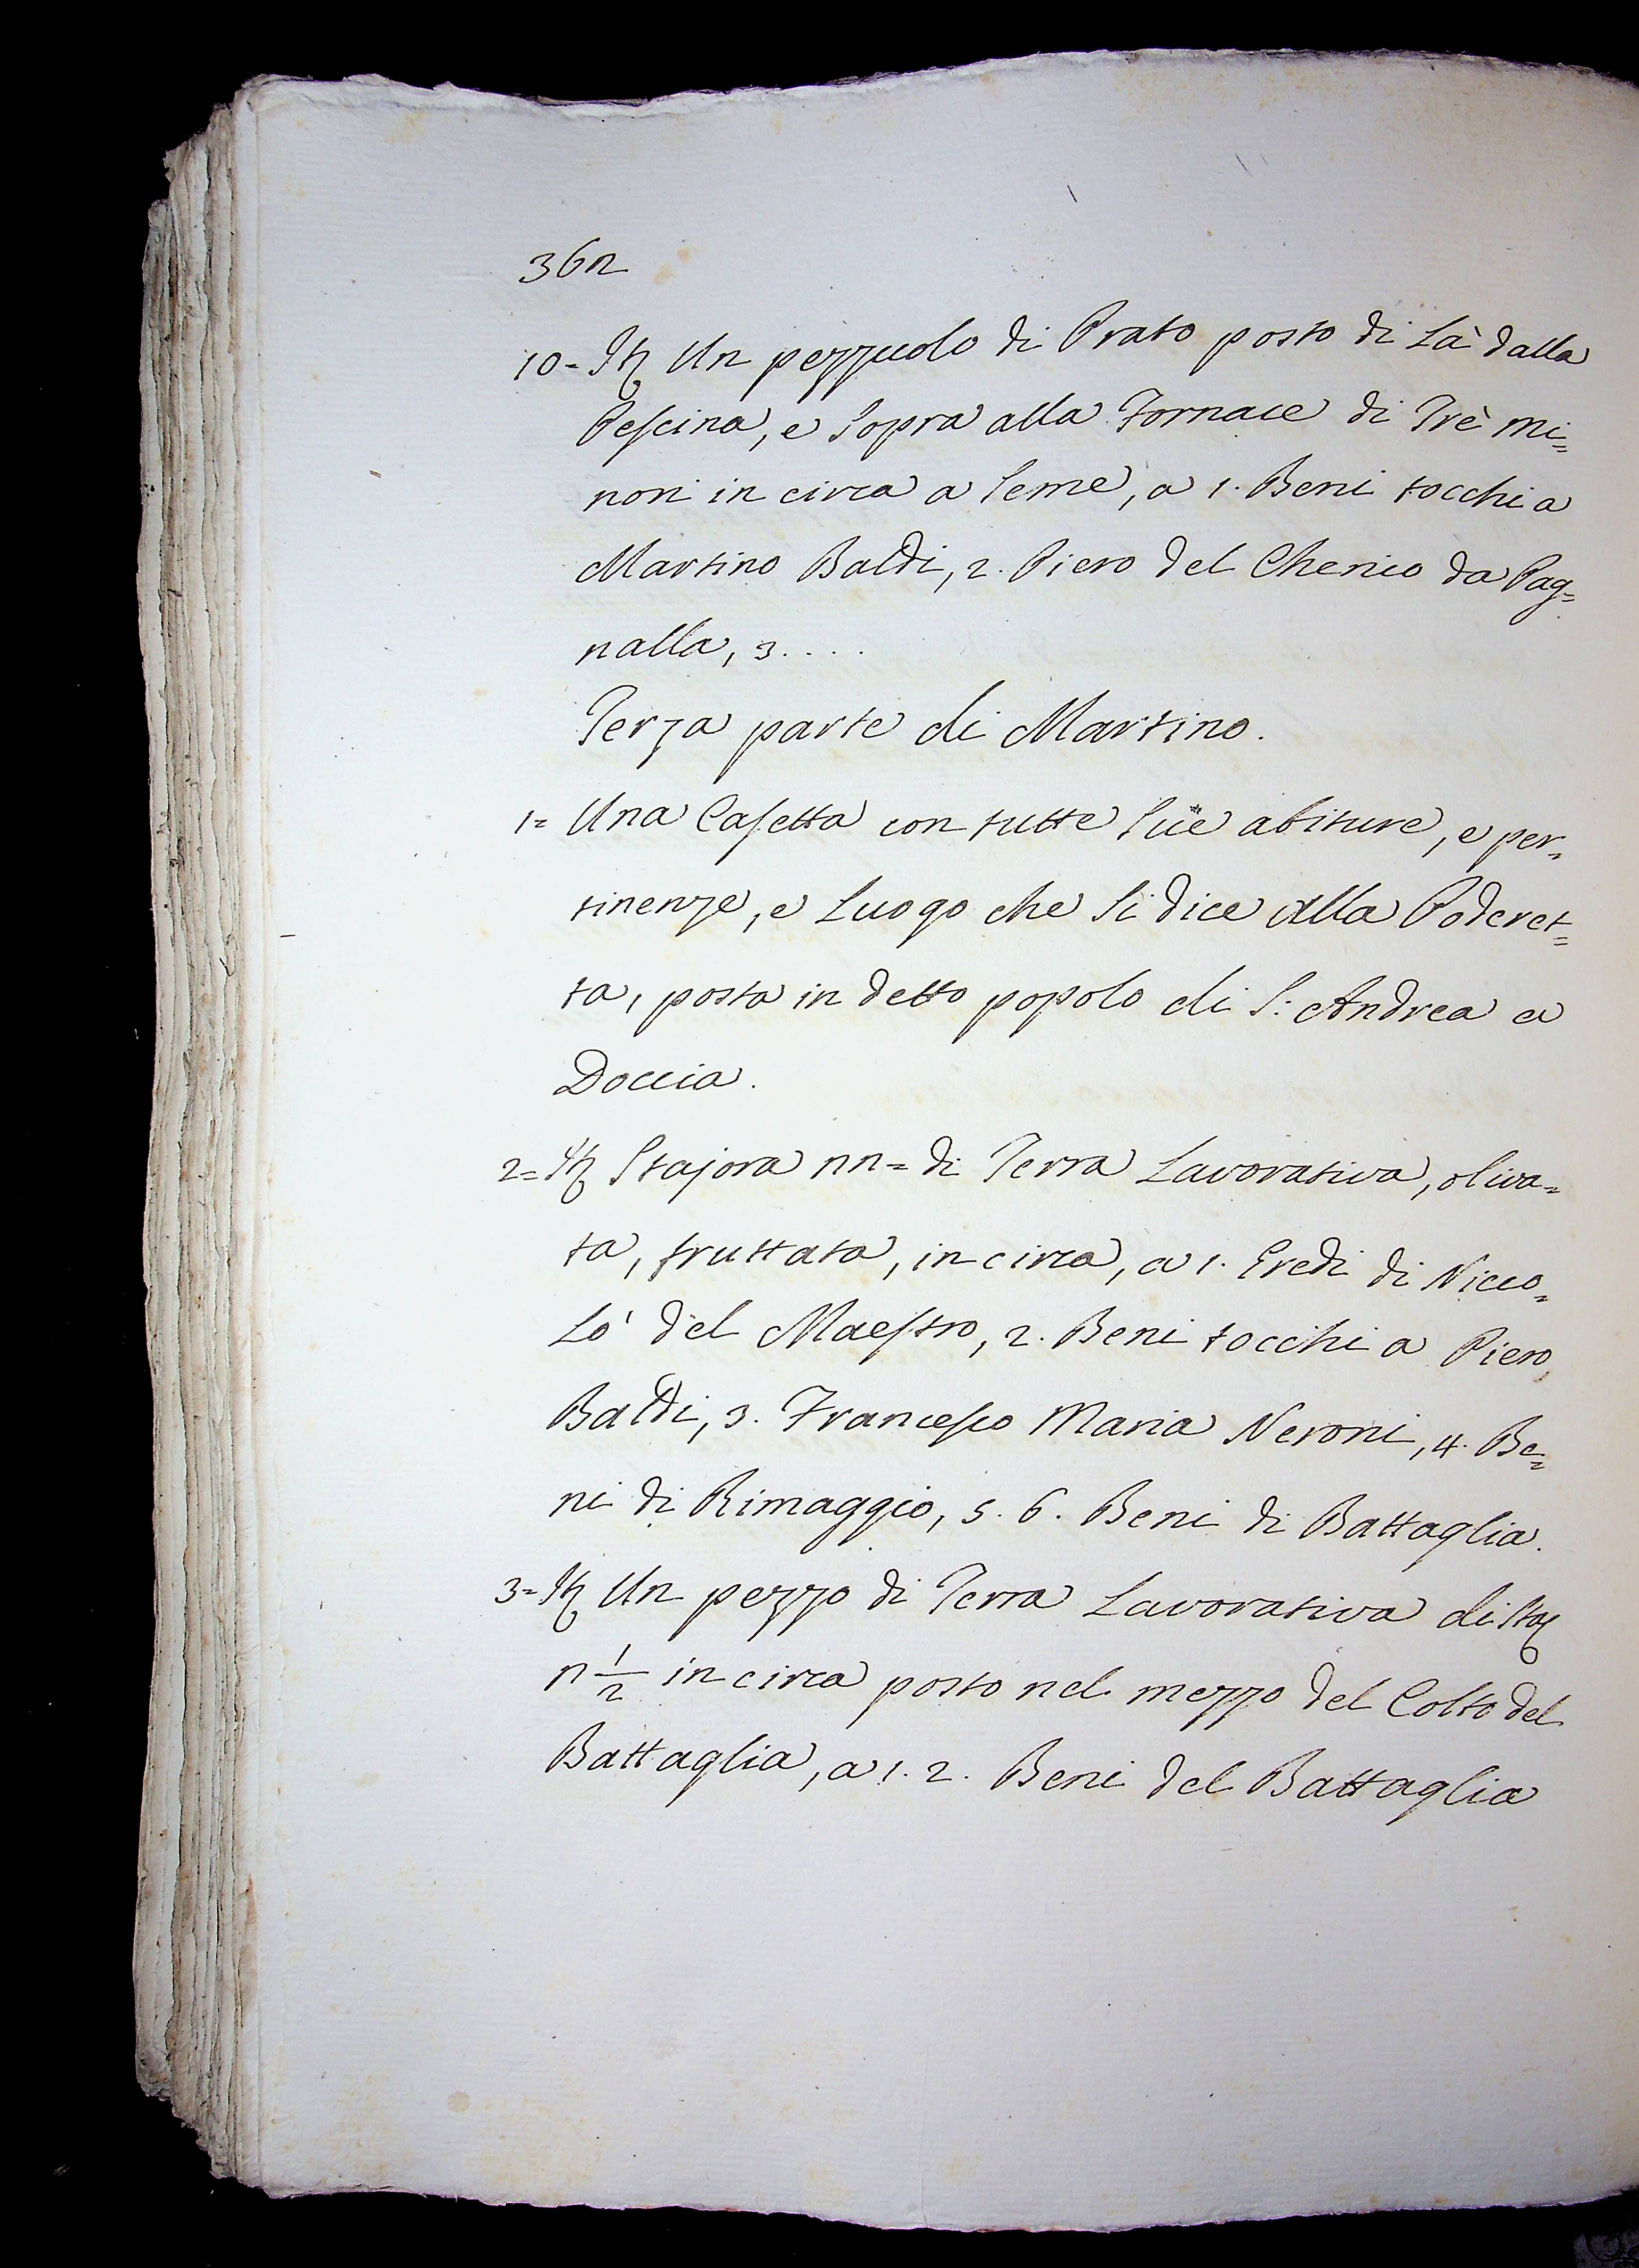 362
10= Itt Un pezzuolo di Prato posto di Là dalla
Pescina, e Sopra alla Fornace di Trè mi=
nori in circa a Seme, a 1. Beni tocchi a
Martino Baldi, 2. Piero del Chenico da Pag=
nalla, 3....
Terza parte di Martino.
1= Una Casetta con tutte Süe abiture, e per=
tinenze, e Luogo che Si dice alla Poderet=
ta, posta in detto popolo di S: Andrea a
Doccia.
2= Itt Stajora 22= di Terra Lavorativa, oliva=
ta, fruttata, in circa, a 1. Eredi di Nicco=
Lò del Maestro, 2. Beni tocchi a Piero
Baldi, 3. Francesco Maria Neroni, 4. Be=
ni di Rimaggio, 5. 6. Beni di Battaglia.
3= Itt Un pezzo di Terra Lavorativa di Sta
2 1/2 in circa posto nel mezzo del Colto del
Battaglia, a 1. 2. Beni del Battaglia